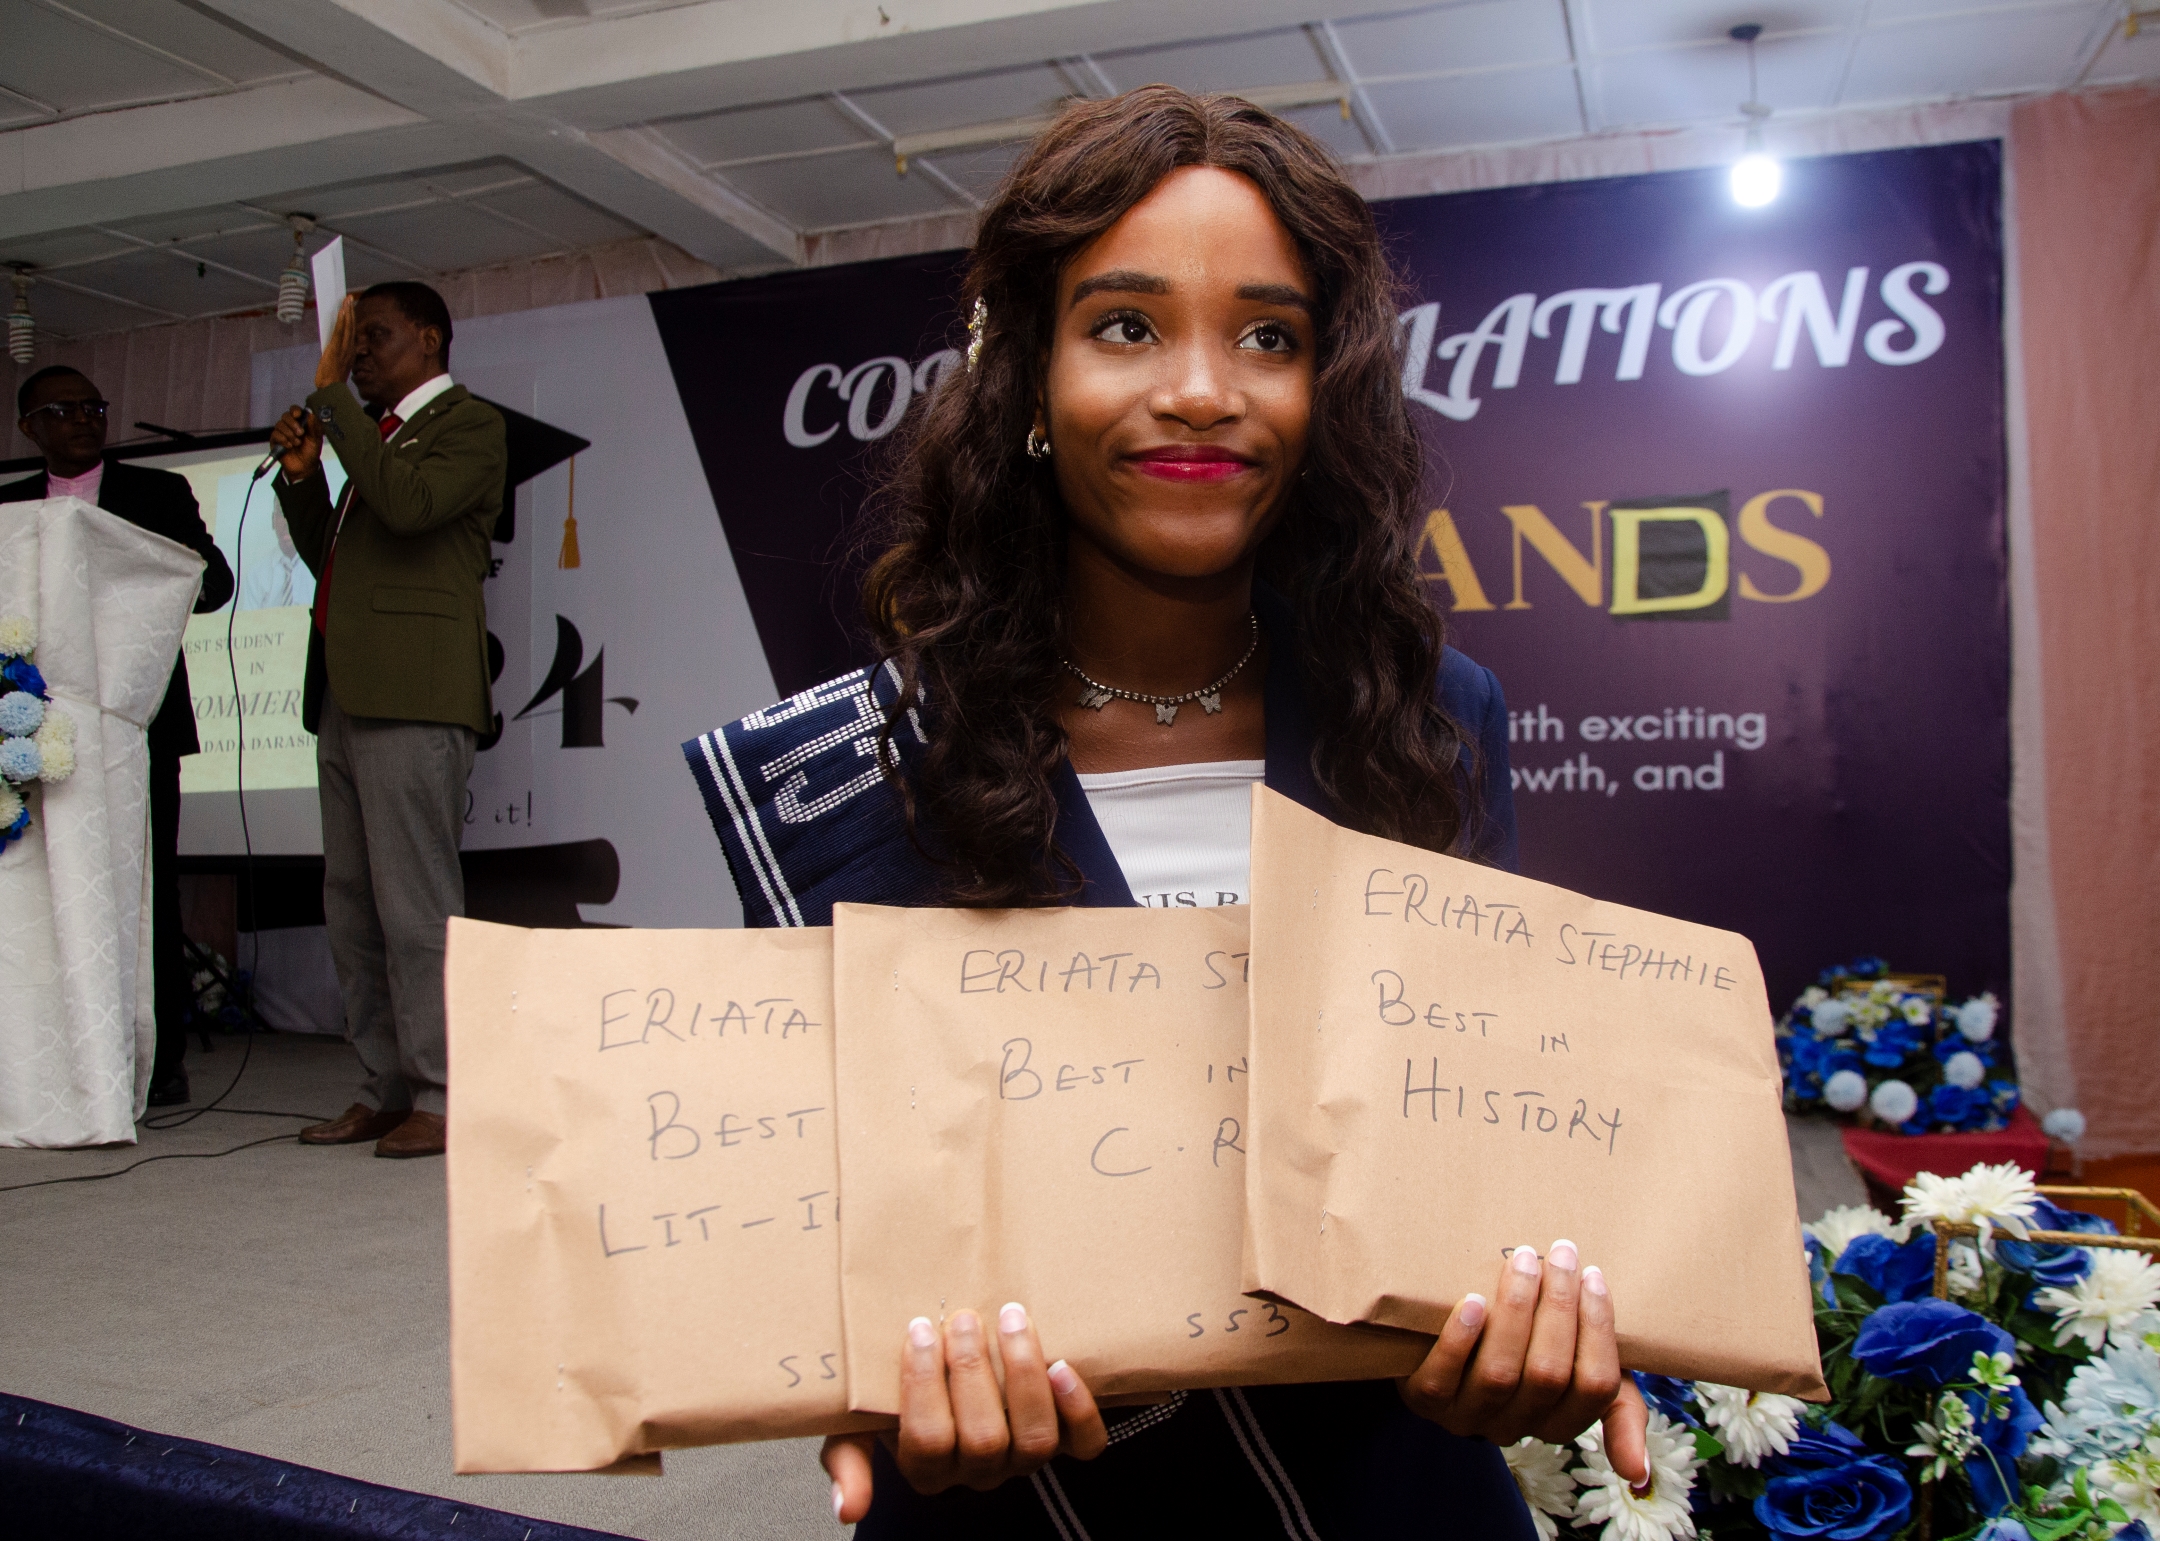 LATIONS
ANDS
ith exciting
owth, and
24
it!
EST STUDENT
IN
OMMER
DADA DARASIM
NIS B
ERIATA
BEST
LIT-I
SS
ERIATA ST
BEST IN
C.R
SS3
ERIATA STEPHNIE
BEST IN
HISTORY